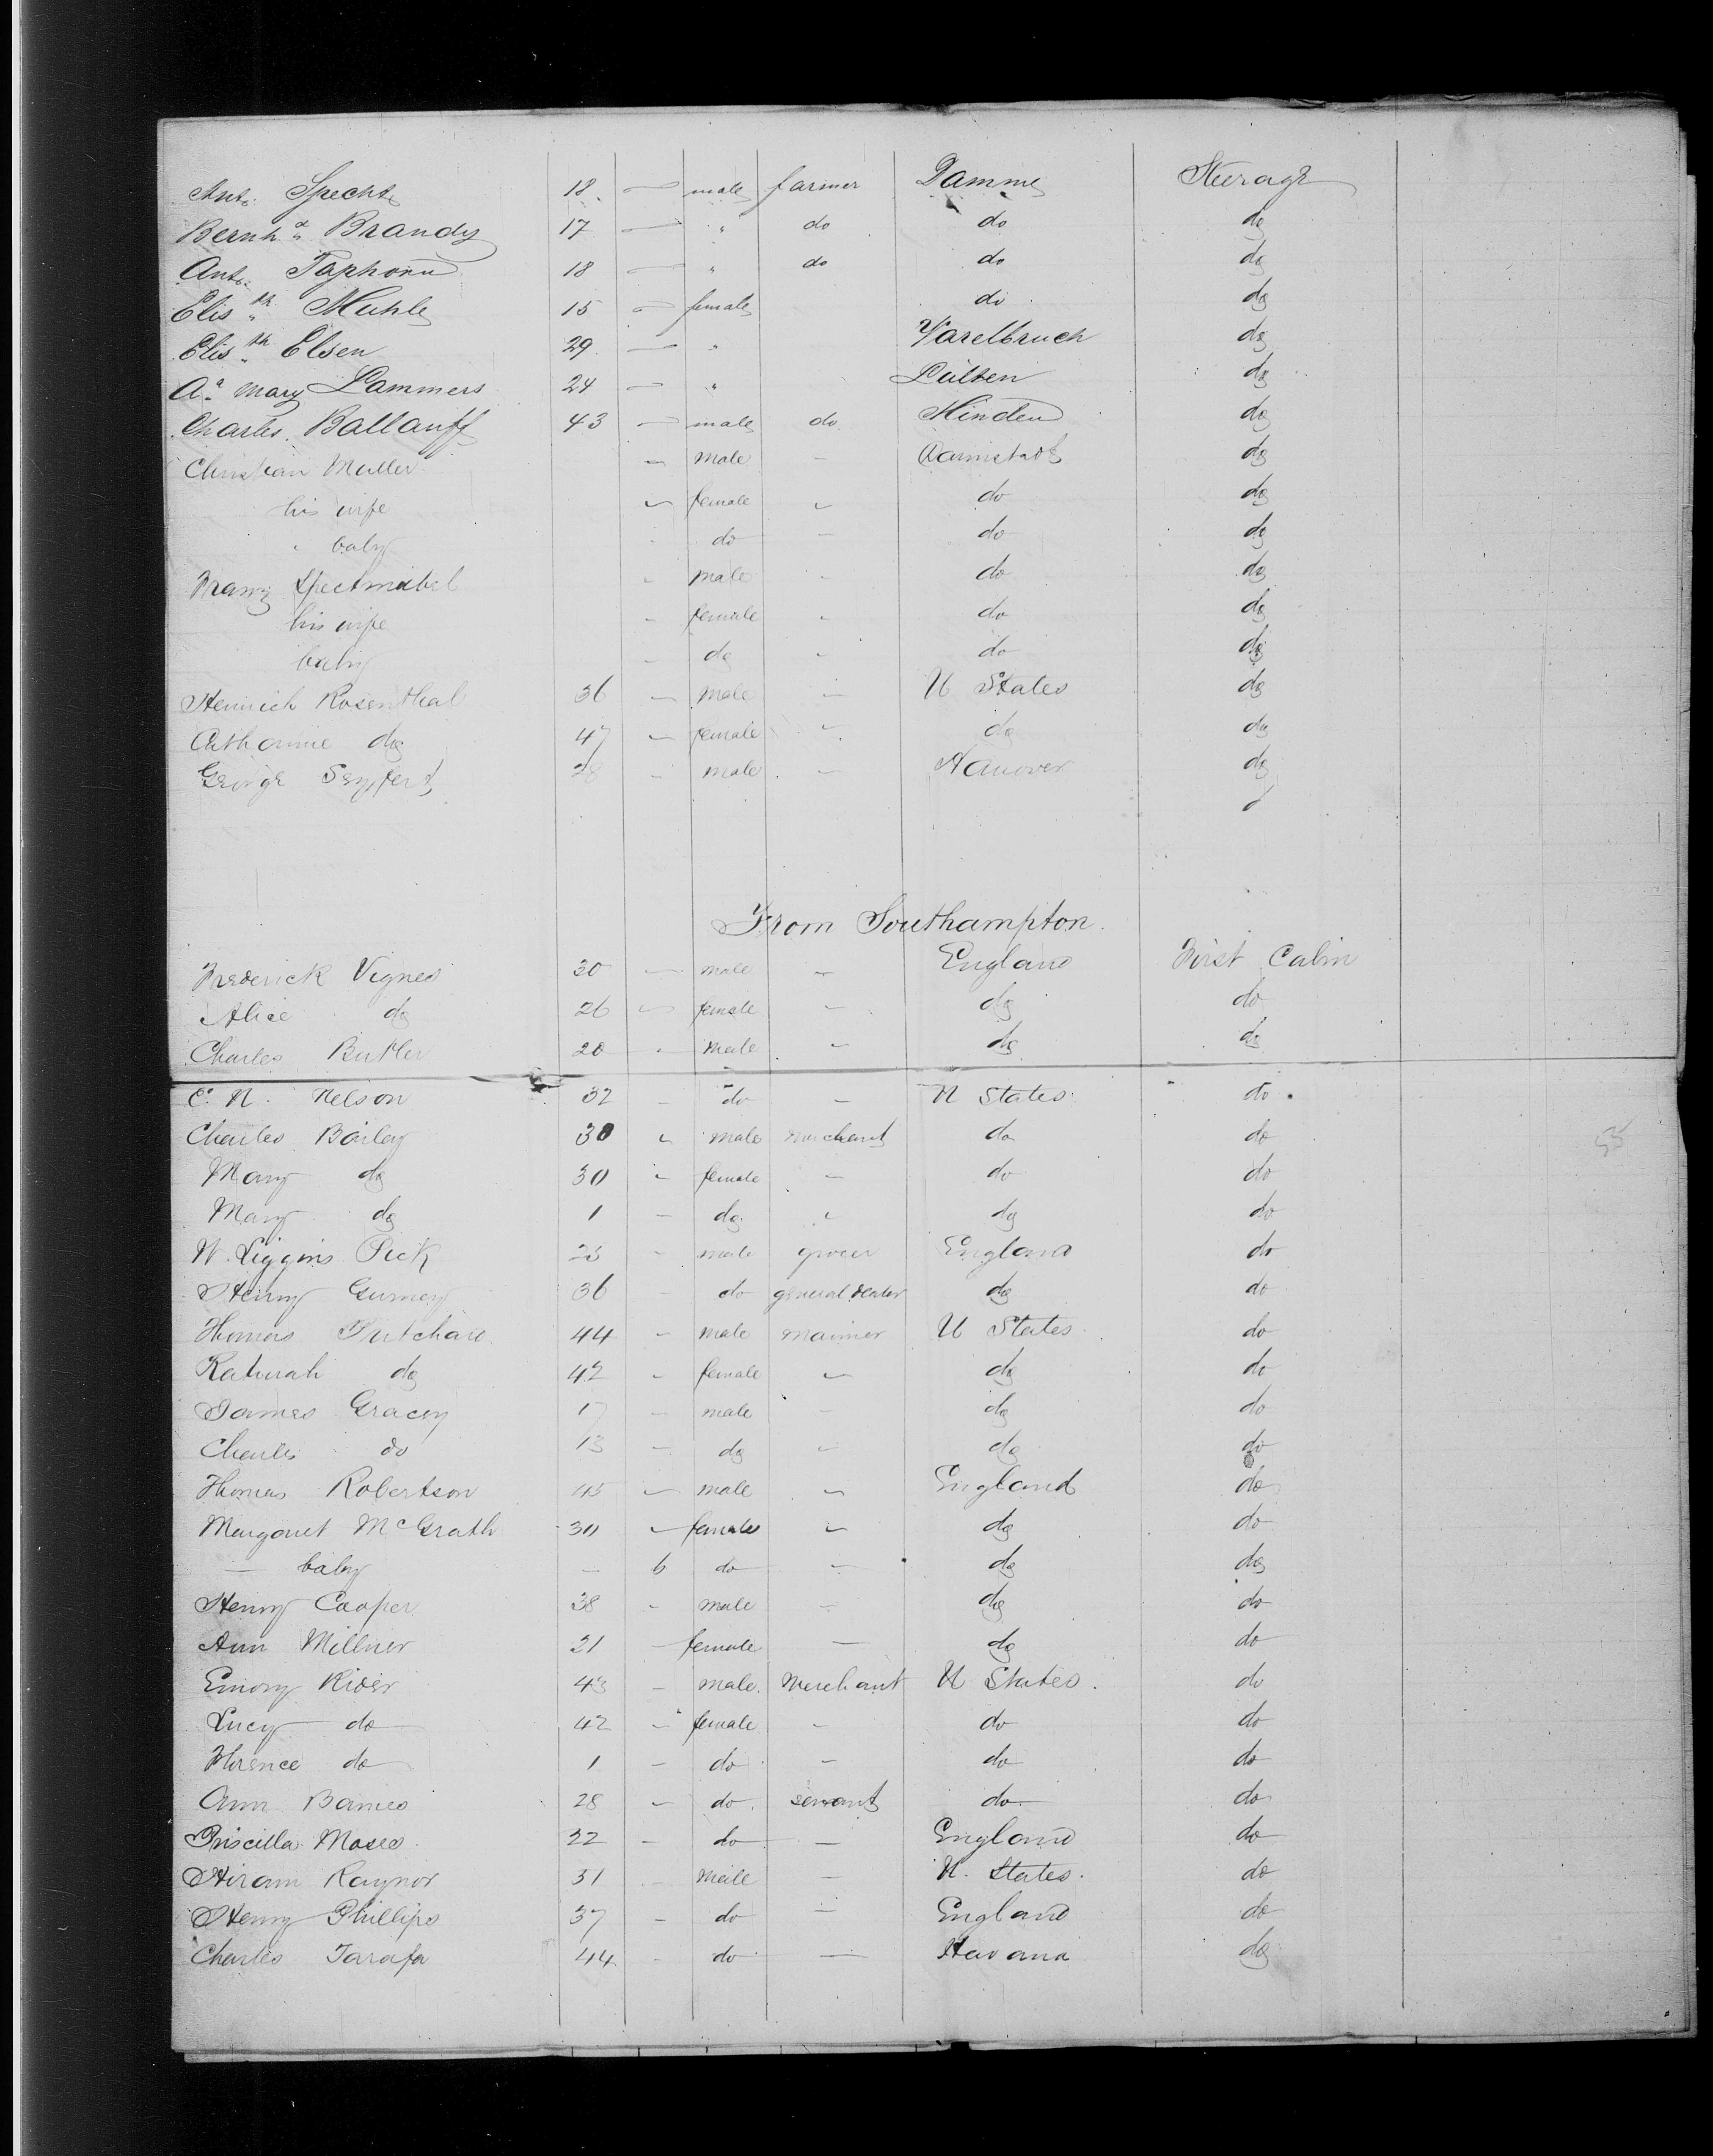 Ant. Specht 18 — male farmer Damme Steerage
Bernhd Brandy 17 — " do do do
Ant. Taphorn 18 — " do do do
Elisth Muhle 15 — female do do
Elisth Elsen 29 — " Varelbruch do
Aa Mary Lammers 24 — " Lülten do
Charles Ballauff 43 — male do Minden do
Christian Muller — male — Darmstadt do
his wife — female — do do
" baby do — do do
Franz male do do
his wife — female — do do
baby — do — do do
Heinrich Rosenthal 36 — male — U States do
Catharine do 47 — female — do do
George Seyfert 28 — male — Hanover do
From Southampton.
Frederick Vignes 30 — male — England First Cabin
Alice do 26 — female — do do
Charles Butler 20 — male — do do
E. N. Nelson 32 — do — U States do
Charles Bailey 30 — male merchant do do
Mary do 30 — female — do do
Mary do 1 — do " do do
W. Liggins Peck 25 — male grocer England do
Henry Gurney 36 — do general dealer do do
Thomas Pritchard 44 — male mariner U States do
Katurah do 42 — female — do do
James Gracey 17 — male — do do
Charles do 13 — do — do do
Thomas Robertson 45 — male — England do
Margaret McGrath 30 — female — do do
— baby — 6 do — do do
Henry Cooper 38 — male — do do
Ann Millner 21 — female — do do
Emory Rider 43 — male Merchant U States. do
Lucy do 42 — female — do do
Florence do 1 — do — do do
Ann Barnes 28 — do servant do do
Priscilla Moses 22 — do — England do
Hiram Raynor 31 — male — U. States. do
Henry Phillips 37 — do — England do
Charles Tarafa 44 — do — Havana do